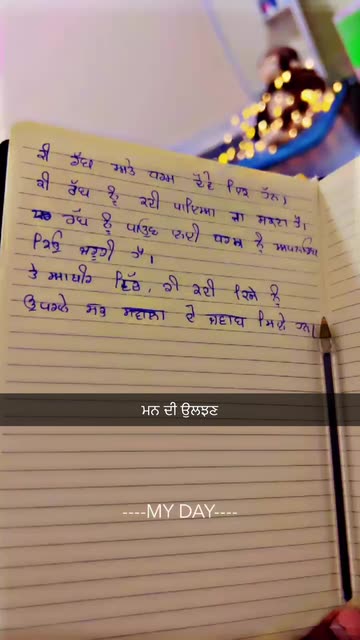 ਕੀ ਰੱਬ ਅਤੇ ਧਰਮ ਦੋਵੇਂ ਇਕ ਹਨ।
ਕੀ ਰੱਬ ਨੂੰ ਕਦੀ ਪਾਇਆ ਜਾ ਸਕਦਾ ਹੈ।
ਰੱਬ ਨੂੰ ਪਾਉਣ ਲਈ ਧਰਮ ਨੂੰ ਅਪਨਾਉਣਾ
ਕਿਉਂ ਜਰੂਰੀ ਹੈ।
ਤੇ ਆਖੀਰ ਵਿੱਚ, ਕੀ ਕਦੀ ਕਿਸੇ ਨੂੰ
ਉਪਰਲੇ ਸਭ ਸਵਾਲਾ ਦੇ ਜਵਾਬ ਮਿਲੇ ਹਨ।
ਮਨ ਦੀ ਉਲਝਣ
----MY DAY----